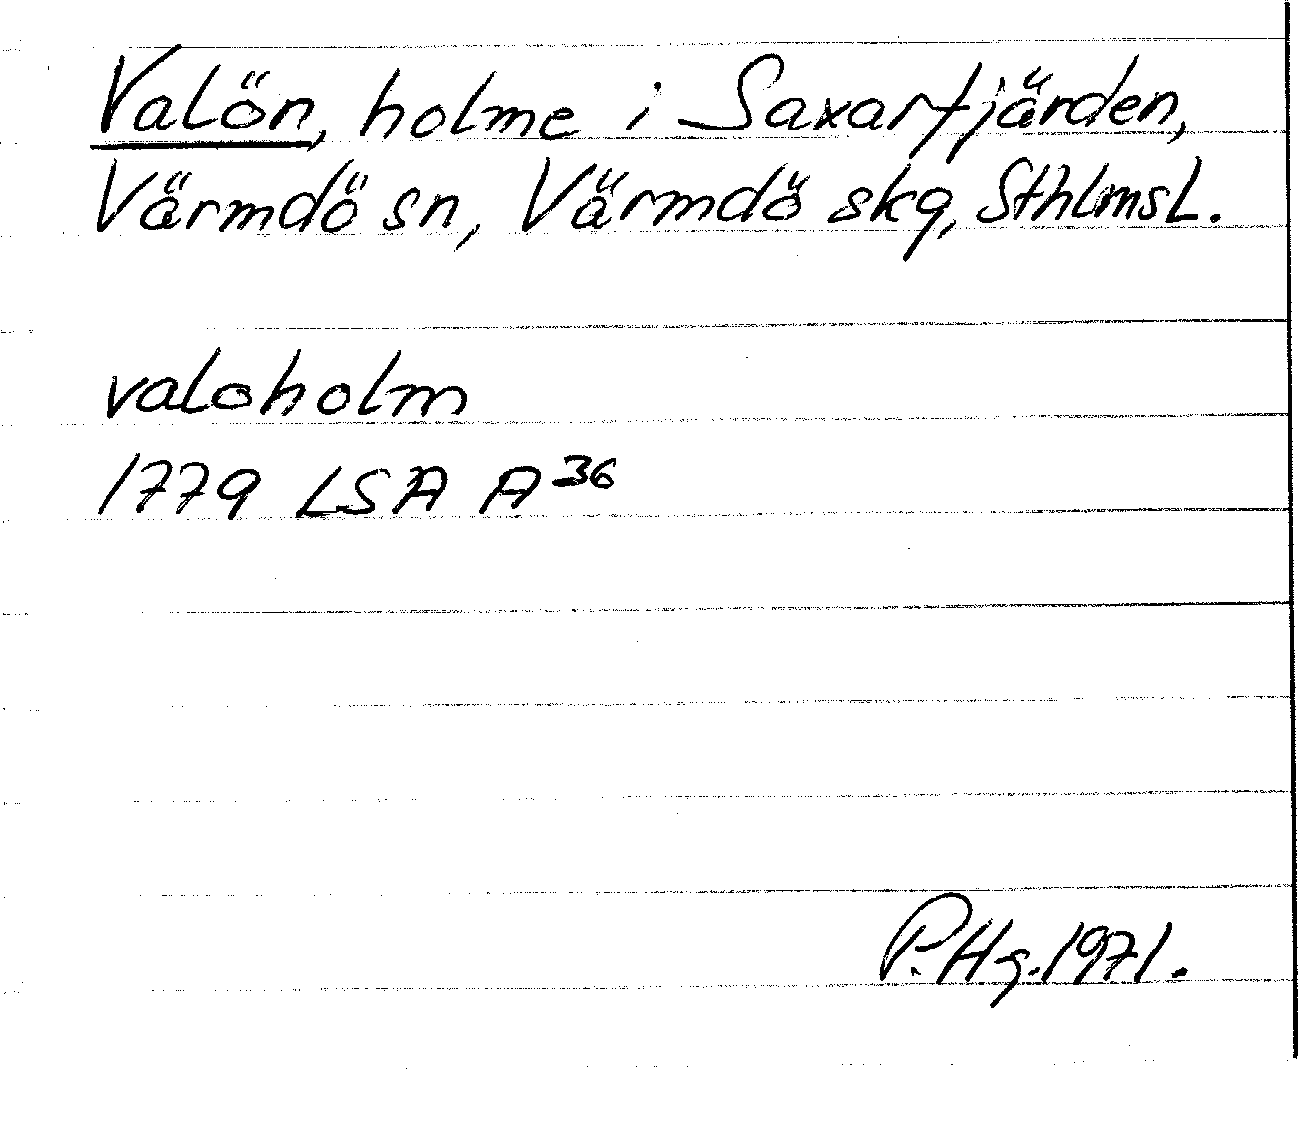 Valön, holme i Saxarfjärden,
Värmdö sn, Värmdö skg, Sthlms l.
valoholm
1779 LSA A³⁶
P.Hg. 1971.